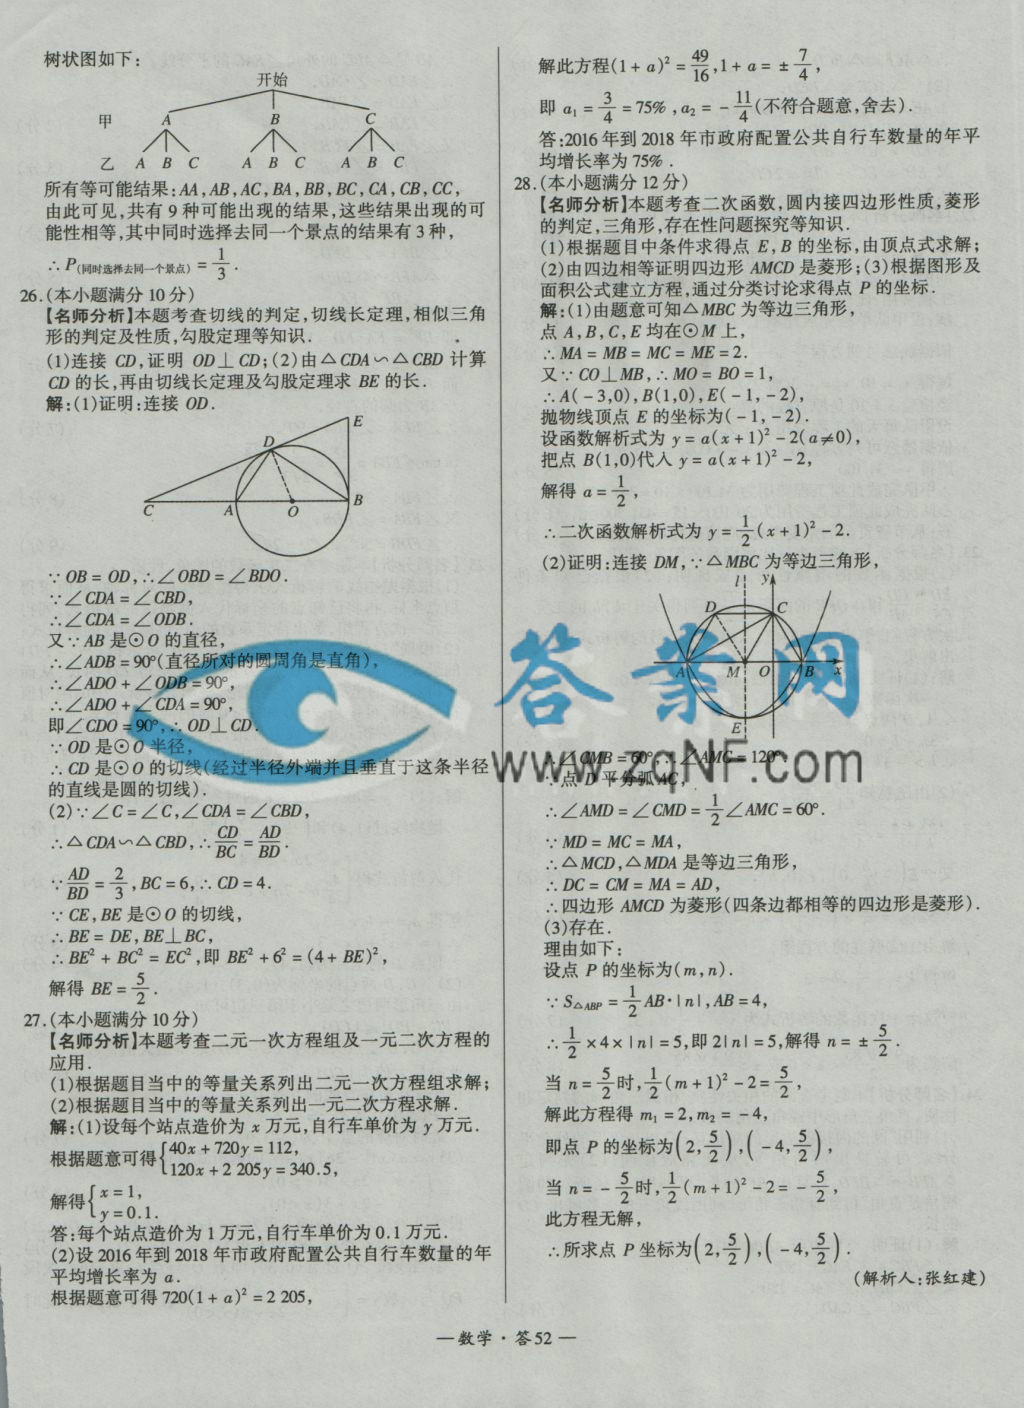 树状图如下:
开始
甲 A B C
乙 A B C A B C A B C
所有等可能结果:AA,AB,AC,BA,BB,BC,CA,CB,CC,
由此可见,共有 9 种可能出现的结果,这些结果出现的可
能性相等,其中同时选择去同一个景点的结果有 3 种,
∴P(同时选择去同一个景点)=1/3.
26.(本小题满分 10 分)
【名师分析】本题考查切线的判定,切线长定理,相似三角
形的判定及性质,勾股定理等知识.
(1)连接 CD,证明 OD⊥CD;(2)由△CDA∽△CBD 计算
CD 的长,再由切线长定理及勾股定理求 BE 的长.
解:(1)证明:连接 OD.
E
D
C A O B
∵OB=OD,∴∠OBD=∠BDO.
∵∠CDA=∠CBD,
∴∠CDA=∠ODB.
又∵AB 是⊙O 的直径,
∴∠ADB=90°(直径所对的圆周角是直角),
∴∠ADO+∠ODB=90°,
∴∠ADO+∠CDA=90°,
即∠CDO=90°,∴OD⊥CD.
∵OD 是⊙O 半径,
∴CD 是⊙O 的切线(经过半径外端并且垂直于这条半径
的直线是圆的切线).
(2)∵∠C=∠C,∠CDA=∠CBD,
∴△CDA∽△CBD,∴CD/BC=AD/BD.
∵AD/BD=2/3,BC=6,∴CD=4.
∵CE,BE 是⊙O 的切线,
∴BE=DE,BE⊥BC,
∴BE²+BC²=EC²,即 BE²+6²=(4+BE)²,
解得 BE=5/2.
27.(本小题满分 10 分)
【名师分析】本题考查二元一次方程组及一元二次方程的
应用.
(1)根据题目当中的等量关系列出二元一次方程组求解;
(2)根据题目当中的等量关系列出一元二次方程求解.
解:(1)设每个站点造价为 x 万元,自行车单价为 y 万元.
根据题意可得{40x+720y=112,
120x+2 205y=340.5,
解得{x=1,
y=0.1.
答:每个站点造价为 1 万元,自行车单价为 0.1 万元.
(2)设 2016 年到 2018 年市政府配置公共自行车数量的年
平均增长率为 a.
根据题意可得 720(1+a)²=2 205,
解此方程(1+a)²=49/16,1+a=±7/4,
即 a₁=3/4=75%,a₂=-11/4(不符合题意,舍去).
答:2016 年到 2018 年市政府配置公共自行车数量的年平
均增长率为 75%.
28.(本小题满分 12 分)
【名师分析】本题考查二次函数,圆内接四边形性质,菱形
的判定,三角形,存在性问题探究等知识.
(1)根据题目中条件求得点 E,B 的坐标,由顶点式求解;
(2)由四边相等证明四边形 AMCD 是菱形;(3)根据图形及
面积公式建立方程,通过分类讨论求得点 P 的坐标.
解:(1)由题意可知△MBC 为等边三角形,
点 A,B,C,E 均在⊙M 上,
∴MA=MB=MC=ME=2.
又∵CO⊥MB,∴MO=BO=1,
∴A(-3,0),B(1,0),E(-1,-2),
抛物线顶点 E 的坐标为(-1,-2).
设函数解析式为 y=a(x+1)²-2(a≠0),
把点 B(1,0)代入 y=a(x+1)²-2,
解得 a=1/2,
∴二次函数解析式为 y=1/2(x+1)²-2.
(2)证明:连接 DM,∵△MBC 为等边三角形,
l y
D C
A M O B x
E
答案网
www.zqNF.com
∴∠CMB=60°,∴∠AMC=120°.
∵点 D 平分弧 AC,
∴∠AMD=∠CMD=1/2∠AMC=60°.
∵MD=MC=MA,
∴△MCD,△MDA 是等边三角形,
∴DC=CM=MA=AD,
∴四边形 AMCD 为菱形(四条边都相等的四边形是菱形).
(3)存在.
理由如下:
设点 P 的坐标为(m,n).
∵S△ABP=1/2AB·|n|,AB=4,
∴1/2×4×|n|=5,即 2|n|=5,解得 n=±5/2.
当 n=5/2时,1/2(m+1)²-2=5/2,
解此方程得 m₁=2,m₂=-4,
即点 P 的坐标为(2,5/2),(-4,5/2),
当 n=-5/2时,1/2(m+1)²-2=-5/2,
此方程无解,
∴所求点 P 坐标为(2,5/2),(-4,5/2).
(解析人:张红建)
—数学·答52—